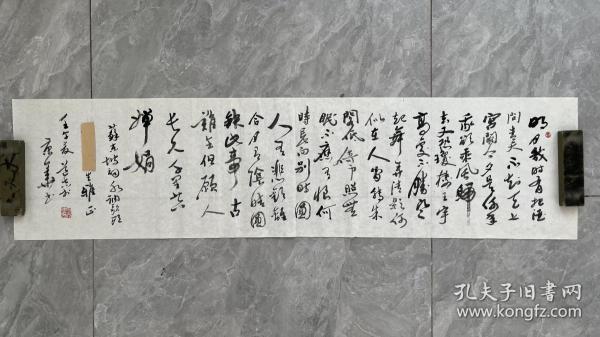 明月几时有把酒
问青天不知天上
宫阙今夕是何年
我欲乘风归
去又恐琼楼玉宇
高处不胜寒
起舞弄清影何
似在人间转朱
阁低绮户照无
眠不应有恨何
时长向别时圆
人有悲欢离
合月有阴晴圆
缺此事古
难全但愿人
长久千里共
婵娟
苏东坡词水调歌头
生雅正
孔夫子旧书网
www.kongfz.com